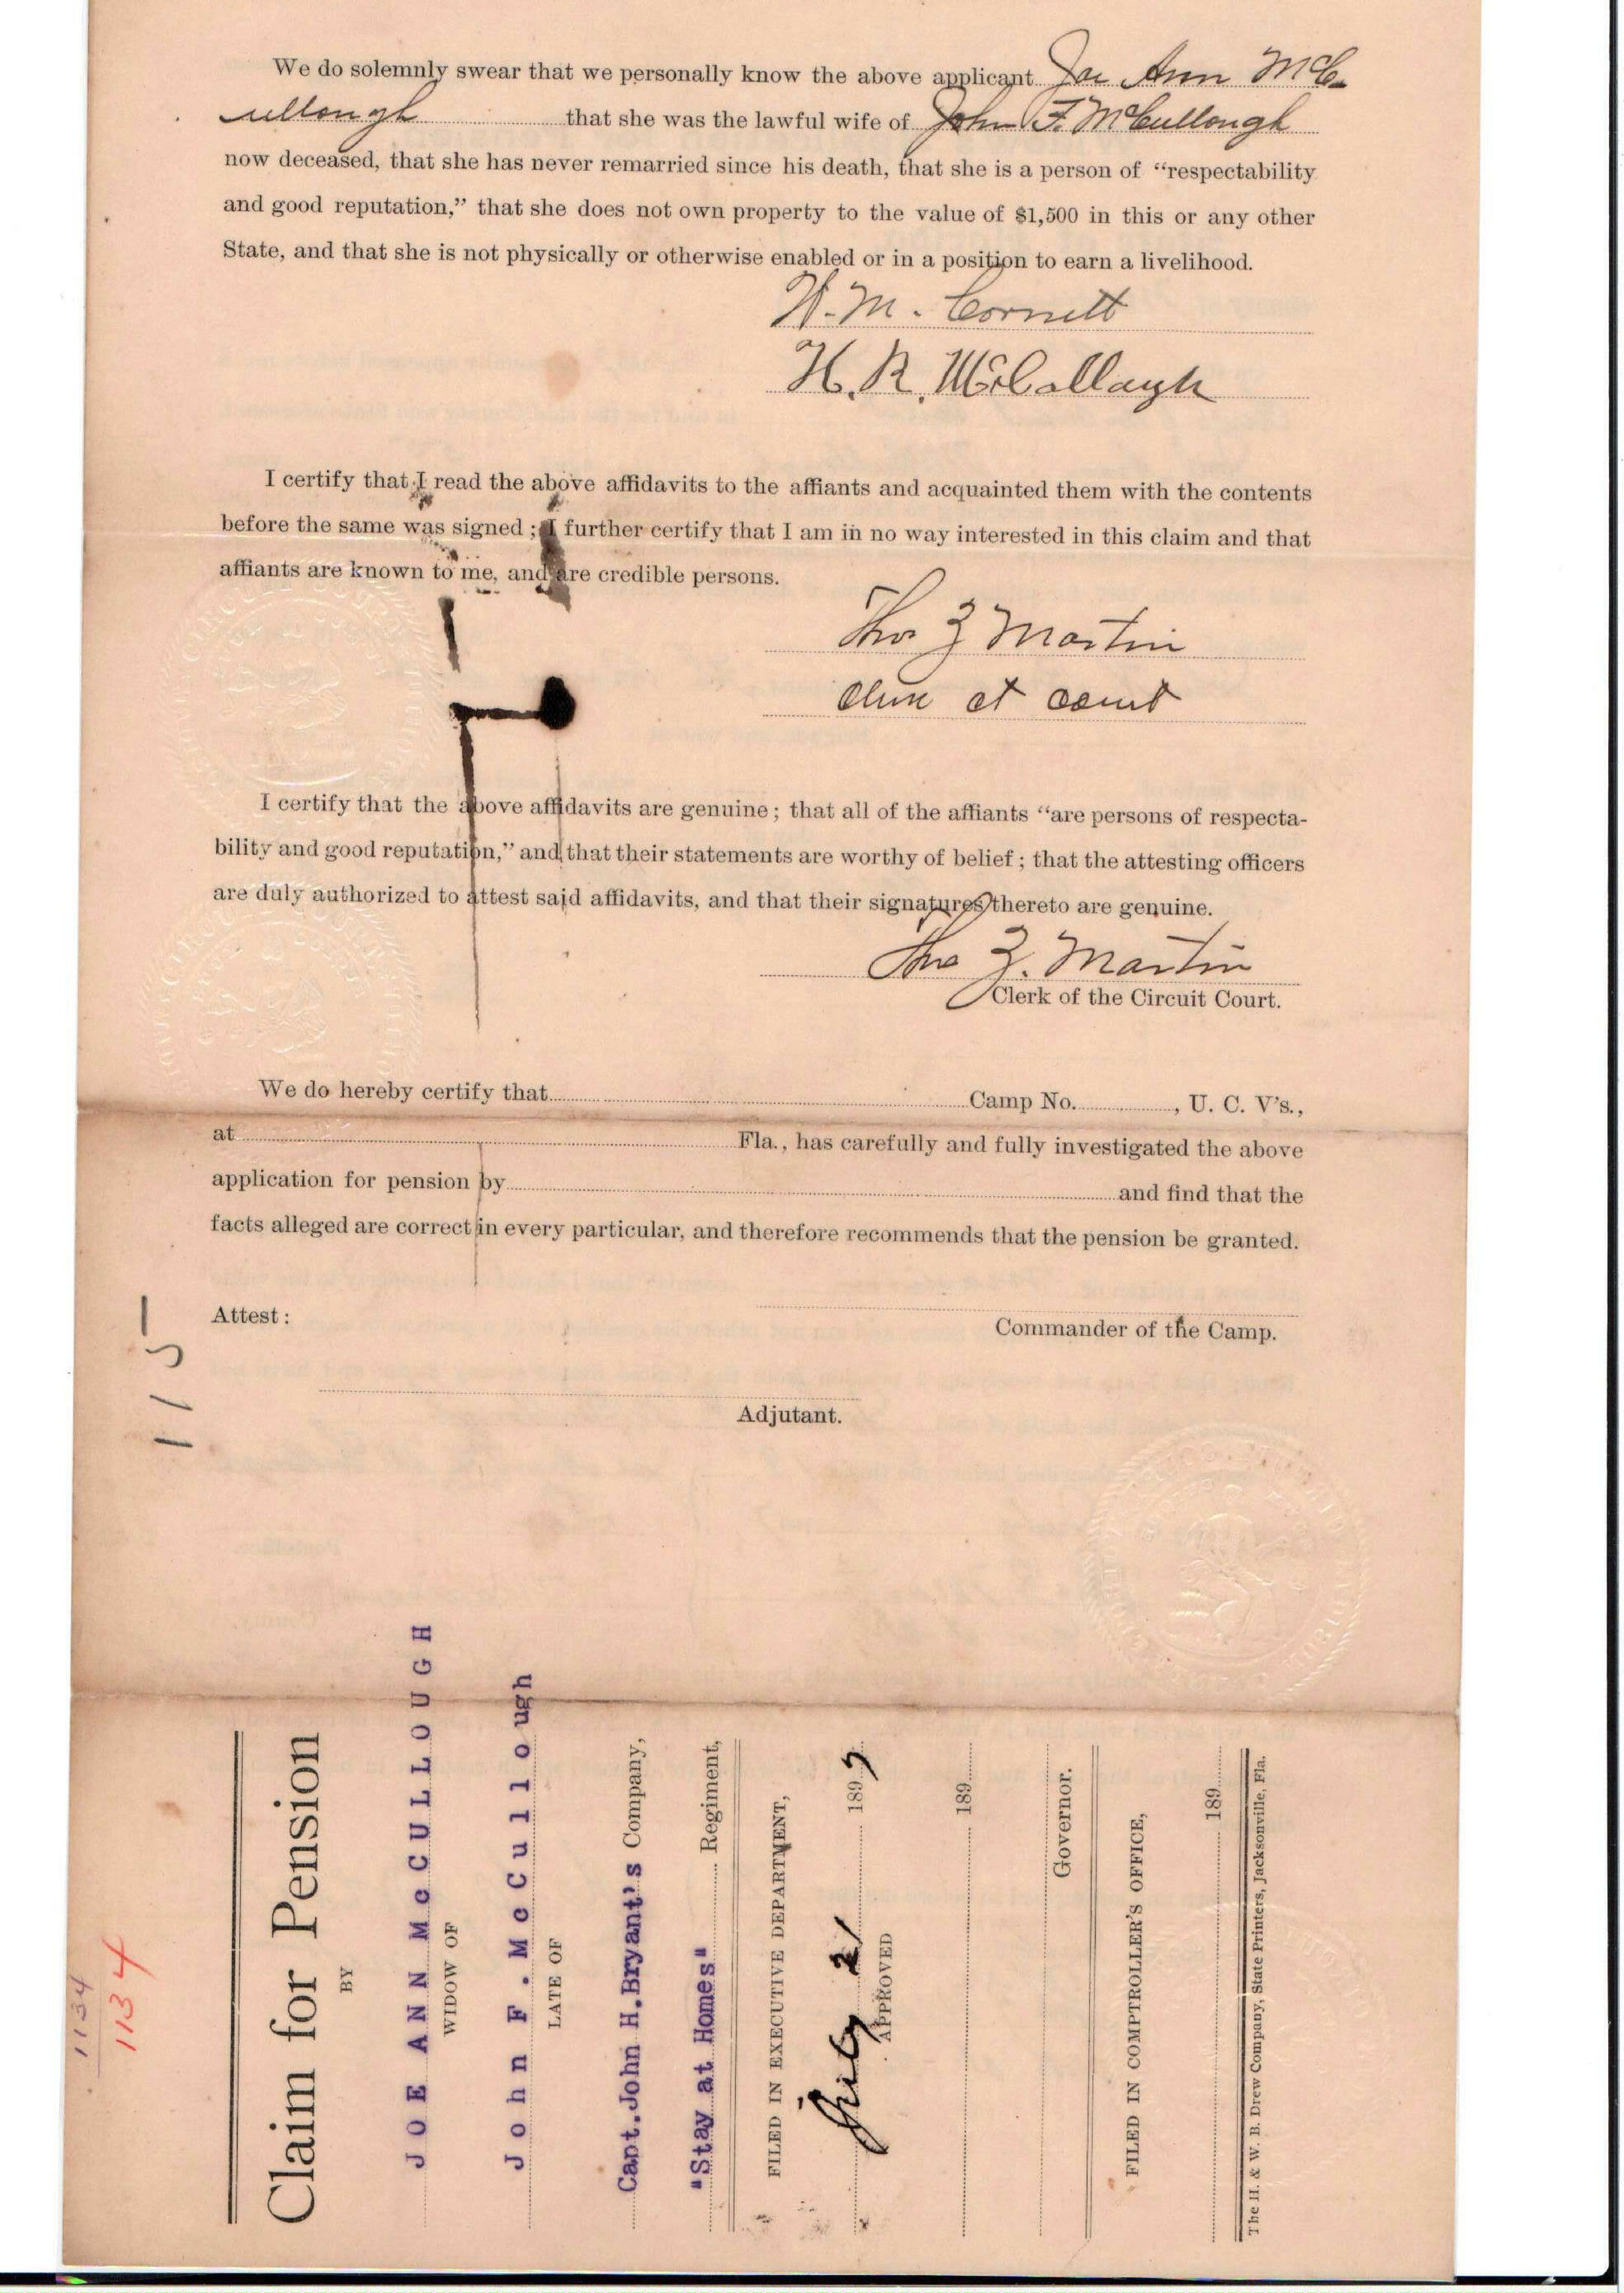 We do solemnly swear that we personally know the above applicant Joe Ann McC-
ullough that she was the lawful wife of John F. McCullough
now deceased, that she has never remarried since his death, that she is a person of “respectability
and good reputation,” that she does not own property to the value of $1,500 in this or any other
State, and that she is not physically or otherwise enabled or in a position to earn a livelihood.
W. M. Cornett
H. R. McCollaugh
I certify that I read the above affidavits to the affiants and acquainted them with the contents
before the same was signed; I further certify that I am in no way interested in this claim and that
affiants are known to me, and are credible persons.
Thos Z Martin
Clerk Ct Court
I certify that the above affidavits are genuine; that all of the affiants “are persons of respecta-
bility and good reputation,” and that their statements are worthy of belief; that the attesting officers
are duly authorized to attest said affidavits, and that their signatures thereto are genuine.
Thos Z. Martin
Clerk of the Circuit Court.
We do hereby certify that Camp No. , U. C. V's.,
at Fla., has carefully and fully investigated the above
application for pension by and find that the
facts alleged are correct in every particular, and therefore recommends that the pension be granted.
Attest:
Commander of the Camp.
Adjutant.
115
1134
1134
Claim for Pension
BY
JOE ANN McCULLOUGH
WIDOW OF
John F. McCullough
LATE OF
Capt. John H. Bryant's Company,
"Stay at Homes" Regiment,
FILED IN EXECUTIVE DEPARTMENT,
July 21 1897
APPROVED
189
Governor.
FILED IN COMPTROLLER'S OFFICE,
189
The H. & W. B. Drew Company, State Printers, Jacksonville, Fla.